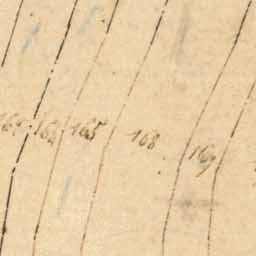 164 165 168 169